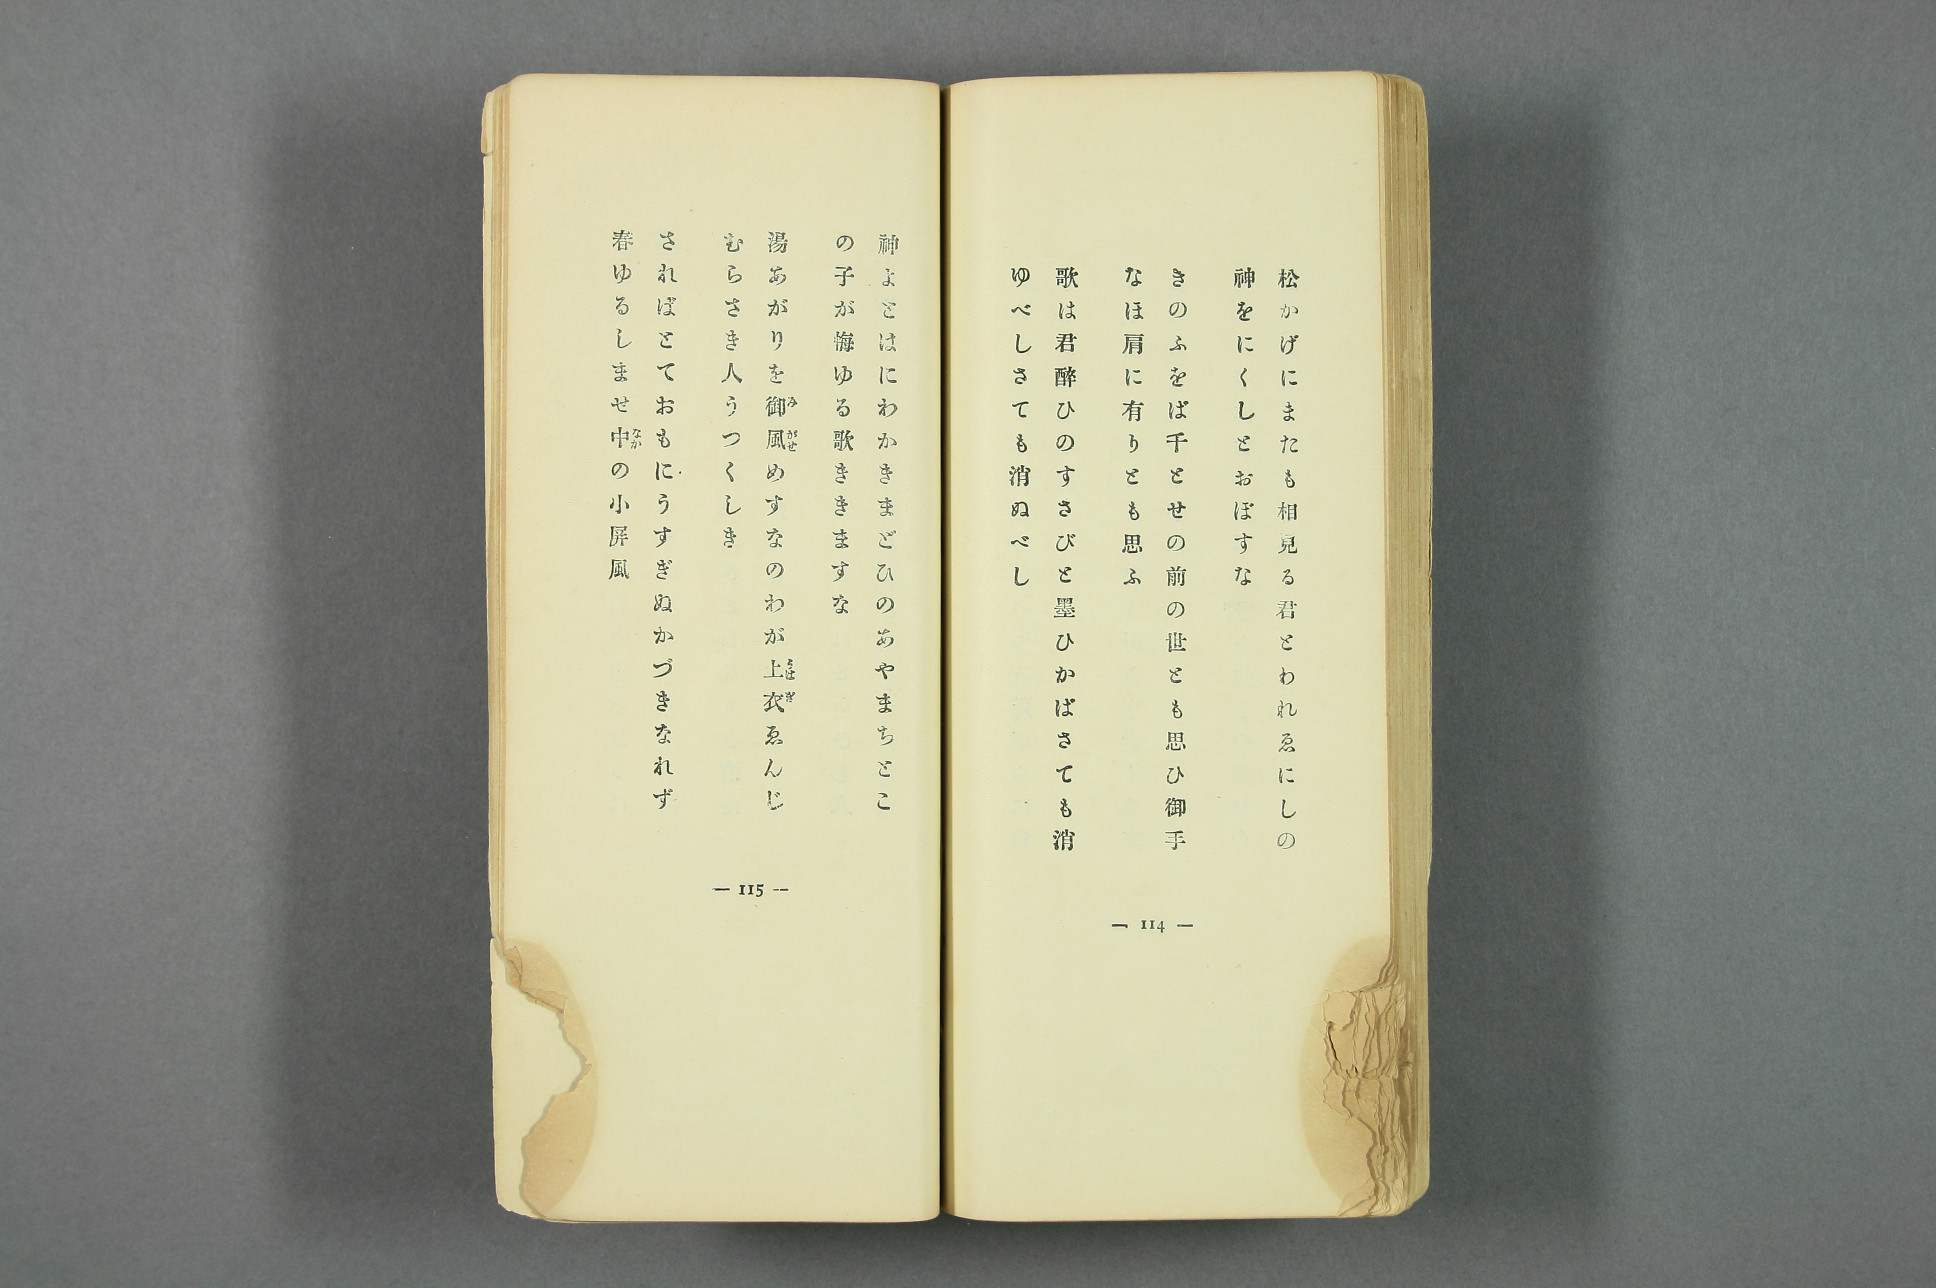 松かげにまたも相見る君とわれゑにしの
神をにくしとおぼすな
きのふをば千とせの前の世とも思ひ御手
なほ肩に有りとも思ふ
歌は君醉ひのすさびと墨ひかばさても消
ゆべしさても消ぬべし
— 114 —
神よとはにわかきまどひのあやまちとこ
の子が悔ゆる歌ききますな
湯あがりを御風めすなのわが上衣ゑんじ
み がぜ うは ぎ
むらさき人うつくしき
さればとておもにうすぎぬかづきなれず
春ゆるしませ中の小屏風
なか
— 115 —